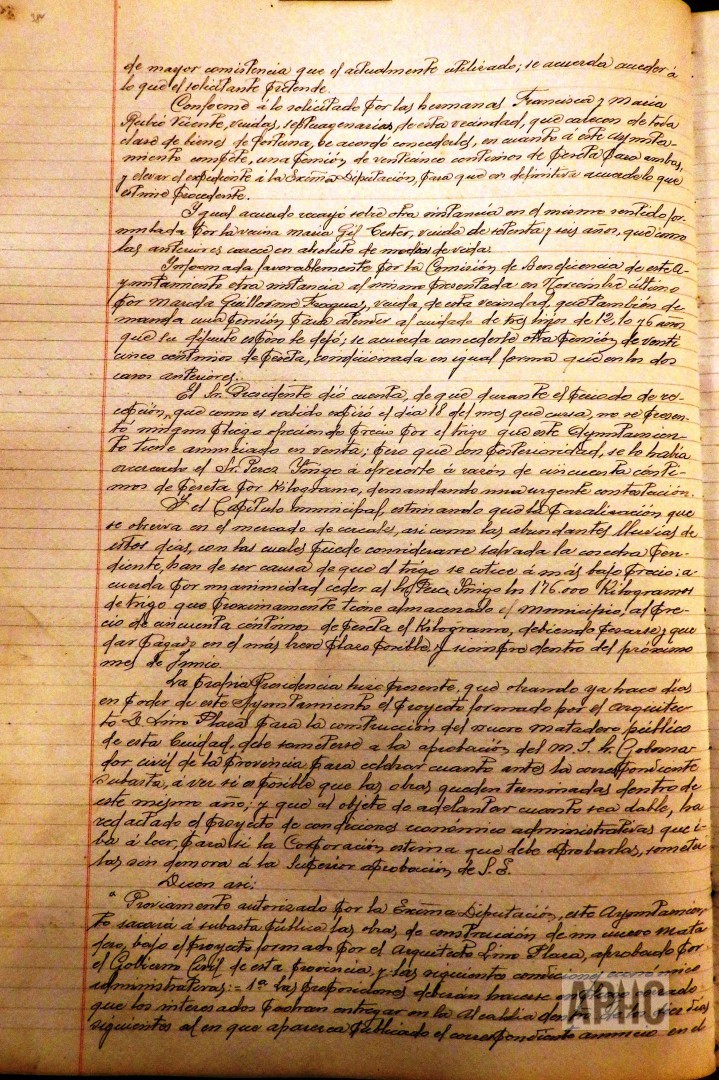 de mayor consistencia que el actualmente utilizado; se acuerda acceder á
lo que el solicitante pretende.
Conforme á lo solicitado por las hermanas Francisca y Maria
Rubio Vicente, viudas, septuagenarias, de esta vecindad, que carecen de toda
clase de bienes de fortuna, se acordó concederles, en cuanto á este Ayunta-
miento compete, una pensión de veinticinco centimos de peseta para ambas,
y elevar el expediente á la Excma Diputación, para que en definitiva acuerde lo que
estime procedente.
Igual acuerdo recayó sobre otra instancia en el mismo sentido for-
mulada por la vecina Maria Gil, viuda de setenta y seis años, que como
las anteriores carece en absoluto de medios de vida.
Informada favorablemente por la Comisión de Beneficencia de este A-
yuntamiento otra instancia al mismo presentada en Noviembre último
por Guillermo Fraguas, viuda, de esta vecindad, que también de-
manda una pensión para atender al cuidado de tres hijos de 12, 10 y 6 años
que su difunto esposo le dejó; se acuerda concederle otra pensión de veinti
cinco centimos de peseta, condicionada en igual forma que en los dos
casos anteriores.
El Sr. Presidente dió cuenta, de que durante el periodo de re-
cepción, que como es sabido expiró el dia 18 del mes que cursa, no se presen-
tó ningun pliego ofreciendo precio por el trigo que este Ayuntamien-
to tiene anunciado en venta; pero que con posterioridad, se le habia
acercado el Sr. Perez Yñigo á ofrecerle á razón de cincuenta cénti-
mos de peseta por Kilogramo, demandando una urgente contestación.
Y el Capitulo municipal, estimando que la paralización que
se observa en el mercado de cereales, asi como las abundantes lluvias de
estos dias, con las cuales puede considerarse salvada la cosecha pen-
diente, han de ser causa de que el trigo se cotice á más bajo precio; a-
cuerda por unanimidad ceder al Sr. Perez Yñigo los 176.000 Kilogramos
de trigo que proximamente tiene almacenado el Municipio, al pre-
cio de cincuenta céntimos de peseta el Kilogramo, debiendo pesarse y que
dar pagado en el más breve plazo posible y siempre dentro del próximo
mes de Junio.
La propia Presidencia hizo presente, que obrando ya hace dias
en poder de este Ayuntamiento el proyecto formado por el arquitec-
to D. Lino Plaza para la construcción del nuevo matadero público
de esta Ciudad, debe someterse a la aprobación del M. I. Sr. Goberna-
dor civil de la provincia para celebrar cuanto antes la correspondiente
subasta, á ver si es posible que las obras queden terminadas dentro de
este mismo año; y que al objeto de adelantar cuanto sea dable, ha
redactado el proyecto de condiciones económico administrativas que i-
ba á leer, para si la Corporación estima que debe aprobarlas, someter
las sin demora á la Superior aprobación de S. E.
Dicen asi:
" Previamente autorizado por la Excma Diputación, este Ayuntamien-
to sacará á subasta pública las obras de construcción de un nuevo mata
dero, bajo el proyecto formado por el Arquitecto Lino Plaza, aprobado por
el Gobierno Civil de esta provincia, y las siguientes condiciones económico
administrativas: = 1ª Las proposiciones deberán hacerse en
que los interesados podrán entregar en la Alcaldia dias
siguientes al en que aparezca publicado el correspondiente anuncio en el
APHC